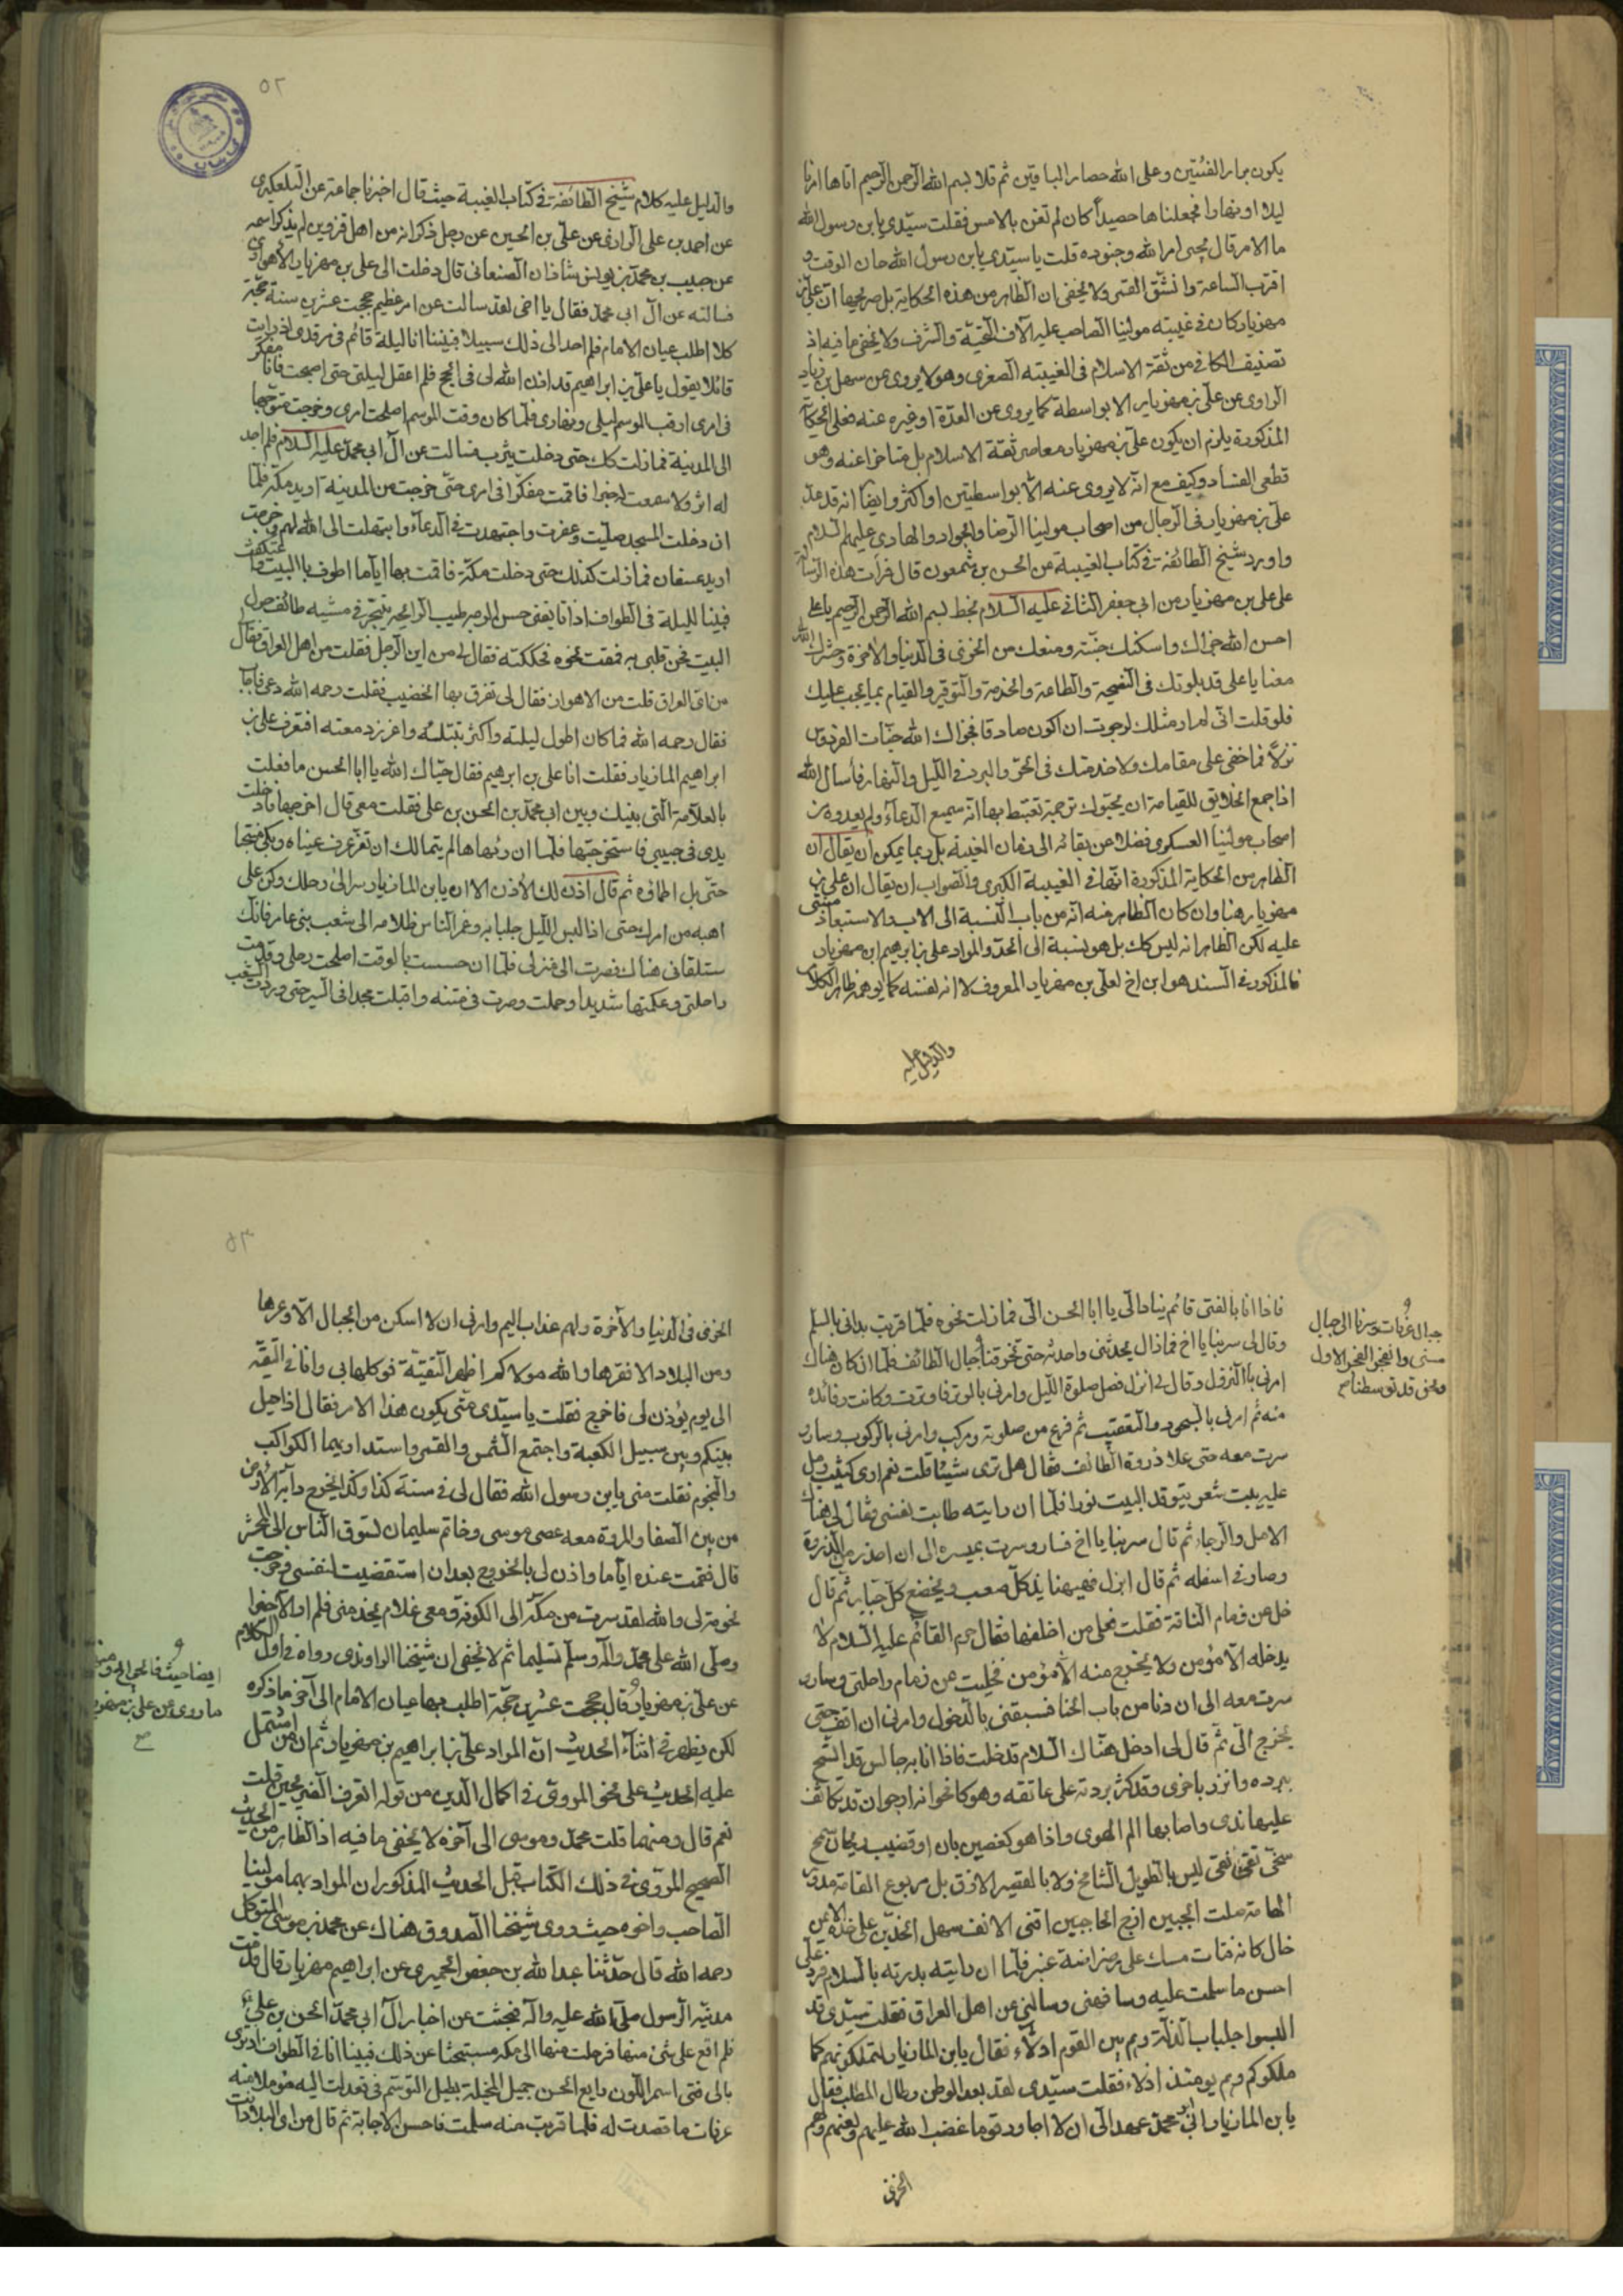 يكون بوار الفئتين وعلى الله حصار الباقين ثم تلا بسم الله الرحمن الرحيم اتاها امرنا
ليلا او نهارا فجعلناها حصيداً كان لم تغن بالامس فقلت سيدي يابن رسول الله
ما الامر قال نحن امر الله وجنوده قلت يا سيدي يابن رسول الله حان الوقت و
اقترب الساعة وانشق القمر ولا يخفى ان الظاهر من هذه الحكاية بل صريحها ان علي بن
مهزيار كان في غيبته مولينا الصاحب عليه آلاف التحية والشرف ولا يخفى ما فيه اذ
تصنيف الكافي من ثقة الاسلام في الغيبته الصغرى وهو لا يروى عن سهل بن زياد
الراوى عن علي بن مهزيار الا بواسطة كما يروى عن العدة او غيره عنه فعلى الحكاية
المذكورة يلزم ان يكون علي بن مهزيار معاصر ثقة الاسلام بل متاخرا عنه وهو
قطعى الفساد وكيف مع انه لا يروى عنه الا بواسطتين او اكثر وايضا انه قد عد
علي بن مهزيار في الرجال من اصحاب مولينا الرضا والجواد والهادى عليهم السلام
واورد شيخ الطائفة في كتاب الغيبة عن الحسن بن شمعون قال قرأت هذه الرسالة
على علي بن مهزيار من ابي جعفر الثاني عليه السلام بخطه بسم الله الرحمن الرحيم يا علي
احسن الله جزاك واسكنك جنته ومنعك من الخزى في الدنيا والاخرة وحشرك الله
معنا يا علي قد بلوتك في النصيحة والطاعة والخدمة والتوقير والقيام بما يجب عليك
فلو قلت انى لم ار مثلك لرجوت ان اكون صادقا فجزاك الله جنات الفردوس
نزلاً فما خفى على مقامك ولا خدمتك في الحر والبرد في الليل والنهار فأسأل الله
اذا جمع الخلايق للقيامة ان يحبوك برحمة تغتبط بها انه سميع الدعاء ولم يعدوه من
اصحاب مولينا العسكرى فضلا عن بقائه الى زمان الغيبة بل ربما يمكن ان يقال ان
الظاهر من الحكاية المذكورة انها في الغيبة الكبرى والصواب ان يقال ان علي بن
مهزيار هنا وان كان الظاهر منه انه من باب النسبة الى الاب والاستبعاد مبتنى
عليه لكن الظاهر انه ليس كك بل هو بنسبة الى الجد والمراد علي بن ابراهيم ابن مهزيار
فالمذكور في السند هو ابن اخ لعلي بن مهزيار المعروف لا انه لنفسه كما يوهمه ظاهر الكلام
والدليل عليه
٥٢
والدليل عليه كلام شيخ الطائفة في كتاب الغيبة حيث قال اخبرنا جماعة عن التلعكبرى
عن احمد بن علي الرازى عن علي بن الحسين عن رجل ذكر انه من اهل قزوين لم يذكر اسمه
عن حبيب بن محمد بن يونس شاذان الصنعانى قال دخلت الى علي بن مهزيار الاهوازى
فسالته عن آل ابي محمد فقال يا اخى لقد سالت عن امر عظيم حججت عشرين سنة حجة
كلا اطلب عيان الامام فلم اجد الى ذلك سبيلا فبينا انا ليلة قائم في مرقدى اذ رايت
قائلا يقول يا علي بن ابراهيم قد اذن الله لى في الحج فلم اعقل ليلتى حتى اصبحت فانا مفكر
في امرى ارقب الموسم ليلى ونهارى فلما كان وقت الموسم اصلحت امرى وخرجت متوجها
الى المدينة فما زلت كك حتى دخلت يثرب فسالت عن آل ابي محمد عليه السلام فلم اجد
له اثرا ولا سمعت له خبرا فاقمت مفكرا في امرى حتى خرجت من المدينة اريد مكة فلما
ان دخلت المسجد صليت وعفرت واجتهدت في الدعاء وابتهلت الى الله لهم وخرجت
اريد عسفان فما زلت كذلك حتى دخلت مكة فاقمت بها اياما اطوف بالبيت واعتكفت
فبينا لليلة في الطواف اذا انا بفتى حسن الوجه طيب الرائحة يتبختر في مشيه طائف حول
البيت فحن قلبى به فقمت نحوه فحككته فقال لى من اين الرجل فقلت من اهل العراق فقال
من اى العراق قلت من الاهواز فقال لى تعرف بها الخضيب فقلت رحمه الله دعى فاجاب
فقال رحمه الله فما كان اطول ليلته واكثر تبتله واغزر دمعته افتعرف علي بن
ابراهيم المازيار فقلت انا علي بن ابرهيم فقال حياك الله يا ابا الحسن ما فعلت
بالعلامة التى بينك وبين ابي محمد بن الحسن بن علي فقلت معى قال اخرجها فادخلت
يدى في جيبى فاستخرجتها فلما ان رءها لم يتمالك ان تغرغرف عيناه وبكى منتحبا
حتى بل اطماره ثم قال اذن لك الاذن الان يابن المازيار سر الى رحلك وكن على
اهبة من امرك حتى اذا لبس الليل جلبابه وغمر الناس ظلامه الى شعب بنى عامر فانك
ستلقانى هناك فصرت الى منزلى فلما ان حسست بالوقت اصلحت رحلى وقدمت
راحلتى وعكمتها شديدا وحملت وصرت في متنه واقبلت مجدا في السير حتى وردت الشعب
فاذا انا بالفتى قائم ينادى الى يا ابا الحسن الى فما زلت نحوه فلما قربت بدانى بالسلم
وقال لى سر بنا يا اخ فما زال يحدثنى واحدثه حتى تخرقنا جبال الطائف فلما ان كان هناك
امرنى بالنزول وقال لى انزل فصل صلوة الليل وامرنى بالوتر فاوترت وكانت فائدة
منه ثم امرنى بالسجود والتعقيب ثم فرغ من صلوته وركب وامرنى بالركوب وسار و
سرت معه حتى علا ذروة الطائف فقال هل ترى شيئا قلت نعم ارى كثيب رمل
عليه بيت شعر يتوقد البيت نورا فلما ان رايته طابت نفسى فقال لى هناك
الامل والرجاء ثم قال سر بنا يا اخ فسار وسرت بمسيره الى ان انحدر من الذروة
وصار في اسفله ثم قال انزل فهيهنا يذل كل صعب ويخضع كل جبار ثم قال
خل عن زمام الناقة فقلت فعلى من اخلفها فقال حرم القائم عليه السلام لا
يدخله الا مؤمن ولا يخرج منه الا مؤمن فخليت عن زمام راحلتى وسار و
سرت معه الى ان دنا من باب الخبا فسبقنى بالدخول وامرنى ان اقف حتى
يخرج الى ثم قال لى ادخل هناك السلام فدخلت فاذا انا به جالس قد اتشح
ببرده واتزر باخرى وقد كسر بردته على عاتقه وهو كاقحوانة ارجوان قد تكاثف
عليها ندى واصابها الم الهوى واذا هو كغصين بان او قضيب ريحان سمح
سخى تقى نقى ليس بالطويل الشامخ ولا بالقصير الازق بل مربوع القامة مدور
الهامة صلت الجبين ازج الحاجبين اقنى الانف سهل الخدين على خده الايمن
خال كانه فتات مسك على رضراضة عنبر فلما ان رايته بدرته بالسلام فرد على
احسن ما سلمت عليه وسافهنى وسالنى عن اهل العراق فقلت سيدى قد
البسوا جلباب الذلة وهم بين القوم اذلاء فقال يابن المازيار لتملكونهم كما
ملكوكم وهم يومئذ اذلاء فقلت سيدى لقد بعد الوطن وطال المطلب فقال
يابن المازيار ابى محمد عهد الى ان لا اجاور قوما غضب الله عليهم ولعنهم ولهم
الخزى
جبال عرفات وسرنا الى جبال
منى وانفجر الفجر الاول
ونحن قد توسطنا صح
٥٣
الخزى في الدنيا والآخرة ولهم عذاب اليم وامرنى ان لا اسكن من الجبال الا وعرها
ومن البلاد الا قفرها والله مولاكم اظهر التقية فوكلها بى وانا في التقية
الى يوم يؤذن لى فاخرج فقلت يا سيدى متى يكون هذا الامر فقال اذا حيل
بينكم وبين سبيل الكعبة واجتمع الشمس والقمر واستدار بهما الكواكب
والنجوم فقلت متى يابن رسول الله فقال لى في سنة كذا وكذا يخرج دابة الارض
من بين الصفا والمروة معه عصى موسى وخاتم سليمان تسوق الناس الى المحشر
قال فقمت عنده اياما واذن لى بالخروج بعد ان استقضيت لنفسى وخرجت
نحو منزلى والله لقد سرت من مكة الى الكوفة ومعى غلام يخدمنى فلم ار الا خيرا
وصلى الله على محمد وآله وسلم تسليما ثم لا يخفى ان شيخنا الراوندى رواه في اول الكلام
عن علي بن مهزيار قال حججت عشرين حجة اطلب بها عيان الامام الى آخر ما ذكره
لكن يظهر في اثناء الحديث ان المراد علي بن ابراهيم بن مهزيار ثم ان من اشتمل
عليه الحديث على نحو المروى في اكمال الدين من قوله اتعرف الضريحين قلت
نعم قال ومنهما قلت محمد وموسى الى آخره لا يخفى ما فيه اذ الظاهر من الحديث
الصحيح المروى في ذلك الكتاب قبل الحديث المذكور ان المراد بهما مولينا
الصاحب واخوه حيث روى شيخنا الصدوق هناك عن محمد بن موسى المتوكل
رحمه الله قال حدثنا عبد الله بن جعفر الحميرى عن ابراهيم مهزيار قال قدمت
مدينة الرسول صلى الله عليه وآله فبحثت عن اخبار آل ابي محمد الحسن بن علي
فلم اقع على شئ منها فرحلت منها الى مكه مستبحثا عن ذلك فبينا انا في الطواف اذ ترى
بالى فتى اسمر اللون رايع الحسن جميل المخيلة يطيل التوسم فى فعدلت اليه مؤملا منه
عرفات ما قصدت له فلما قربت منه سلمت فاحسن الاجابة ثم قال من اى البلاد انت
ايضا حيث
ما روى عن علي بن مهزيار
صح